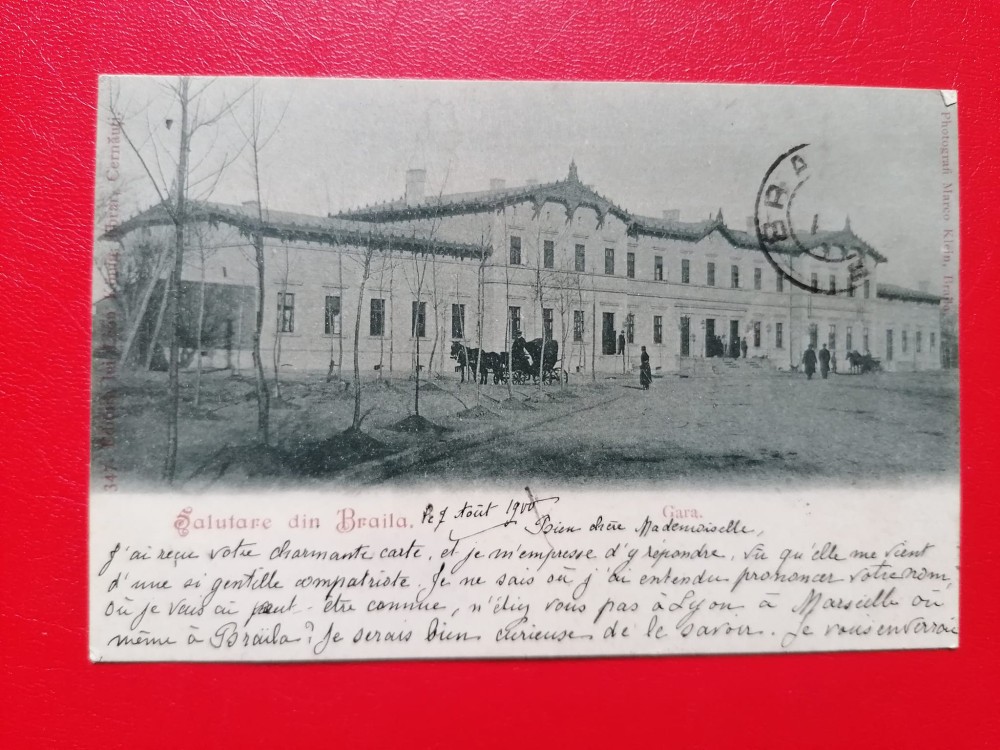 Photografi Marco Klein,
BRA
Salutare din Braila.
Gara.
le 7 Août 1900
Bien chère Mademoiselle,
J'ai reçu votre charmante carte, et je m'empresse d'y répondre, vu qu'elle me vient
d'une si gentille compatriote. Je ne sais où j'ai entendu prononcer votre nom,
où je vous ai peut-être connue, n'étiez vous pas à Lyon à Marseille ou
même à Braïla? Je serais bien curieuse de le savoir. Je vous enverrai